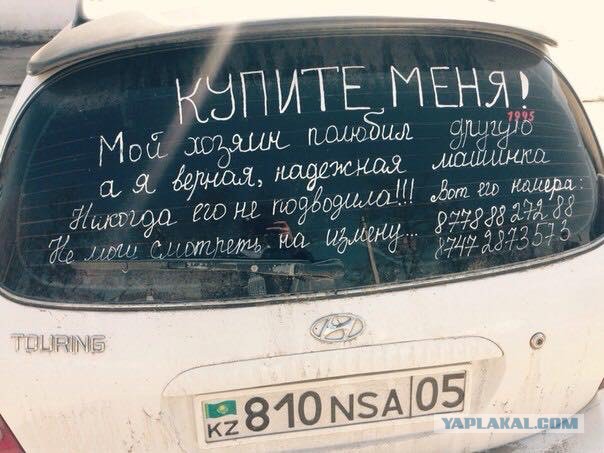 КУПИТЕ МЕНЯ!
1995
Мой хозяин полюбил другую
а я верная, надежная машинка
Никогда его не подводила!!! Вот его номера:
Не могу смотреть на измену... 87788827288
87472873573
TOURING
KZ 810NSA 05
YAPLAKAL.COM